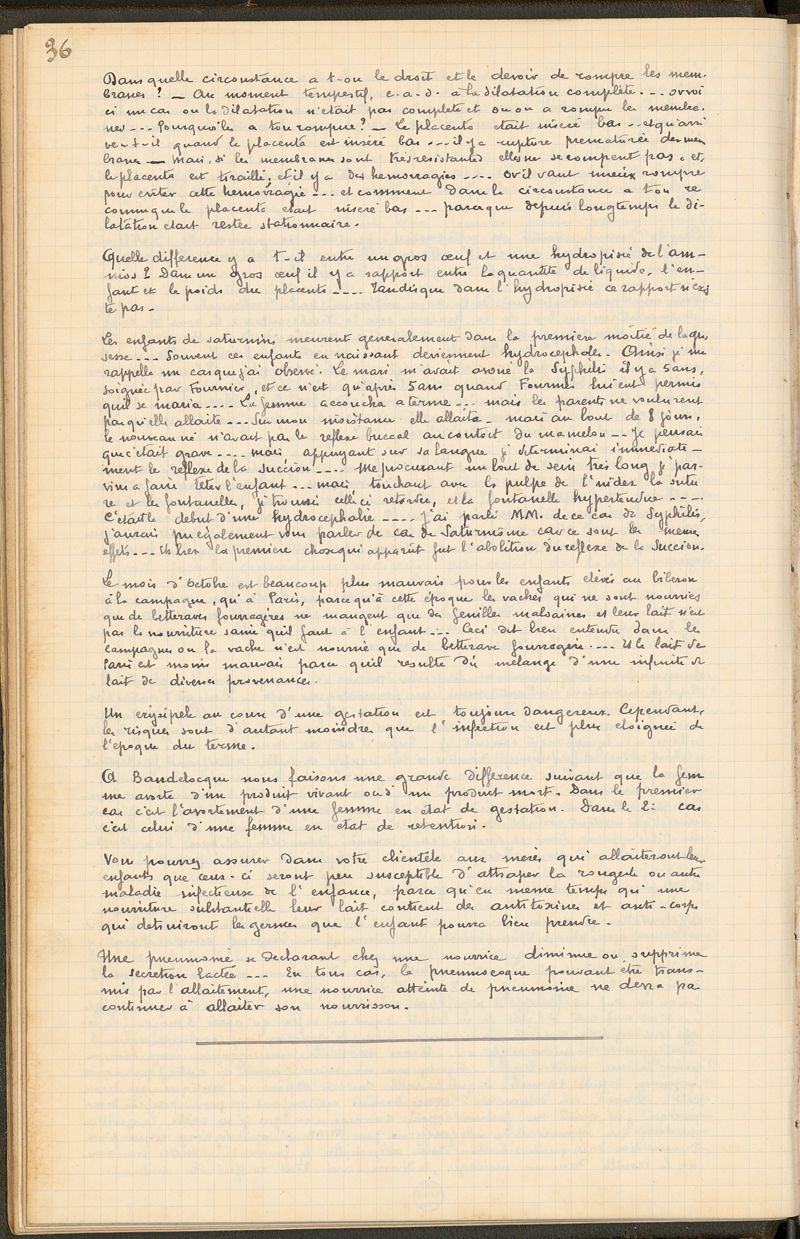 36
Dans quelle circonstance a t-on le droit et le devoir de rompre les mem-
branes ? — Au moment tempestif, c.a.d. à la dilatation complète. --- or voi
ci un cas ou la dilatation n'etait pas complete et ou on a rompu les membra.
nes --- Pourquoi les a ton rompue ? — Le placenta etait inseré bas -- et qu'arri
ve-t-il quand le placenta est inseré bas --- il y a rupture prematurée des mem
branes — mais, si les membranes sont tres resistantes elles ne se rompent pas, et,
le placenta est tiraillé, et il y a des hemorragies ---- or il vaut mieux rompre
pour eviter cette hemorragie --- et comment dans la circonstance a t on re
connu que le placenta etait inseré bas --- parceque depuis longtemps la di-
latation etait restée stationnaire.
Quelle difference y a t-il entre un gros œuf et une hydropisie de l'am-
nios ? Dans un gros œuf il y a rapport entre la quantité de liquide, l'en-
fant et le poids du placenta ---- Tandisque dans l'hydropisie ce rapport n'exis
te pas.
Les enfants de saturnins meurent generalement dans la premiere moitié de la gros
sesse --- Souvent ces enfants en naissant deviennent hydrocephales. Ainsi je me
rappelle un cas que j'ai observé. Le mari m'avait avoué la Syphilis il y a 5 ans,
soignée par Fournier, et ce n'est qu'après 5 ans quand Fournier lui eut permis
quil se maria ---- La femme accoucha a terme --- mais les parents ne voulurent
pas qu'elle allaite --- Sur mon insistance elle allaita - mais au bout de 8 jours,
le nouveau né n'avait pas le reflexe buccal au contact du mamelon -- Je pensais
que c'était grave ---- mais appuyant sur sa langue je determinai immediate-
ment le reflexe de la succion ---- Me procurant un bout de sein très long, je par-
vins a faire teter l'enfant --- mais, touchant avec la pulpe de l'index la sutu
re et les fontanelles, je trouvai celle ci retordue, et la fontanelle hypertendue ----
C'était le debut d'une hydrocephalie ---- j'ai parlé MM. de ce cas de Syphilis,
j'aurais pu egalement vous parler de cas de Saturnisme car ce sont les memes
effets --- Eh bien la premiere chose qui apparût fut l'abolition du reflexe de la succion.
Le mois d'Octobre est beaucoup plus mauvais pour les enfants elevés au biberon
à la campagne, qu'à Paris, parce qu'à cette époque les vaches qui ne sont nourries
que de betteraves fourragères ne mangent que des feuilles malsaines et leur lait n'est
pas la nourriture saine quil faut à l'enfant --- Ceci dit bien entendu dans les
campagnes ou la vache n'est nourrie que de betterave fourragère ---- Et le lait de
Paris est moins mauvais parce quil resulte du melange d'une infinité de
lait de diverses provenances.
Un erysipèle au cours d'une gestation est toujours dangereux. Cependant,
les risques sont d'autant moindres que l'infection est plus eloignée de
l'epoque du terme.
A Baudelocque nous faisons une grande difference suivant que la fem
me avorte d'un produit vivant ou d'un produit mort. Dans le premier
cas c'est l'avortement d'une femme en etat de gestation. Dans le 2e cas
c'est celui d'une femme en etat de retention.
Vous pourrez assurer dans votre clientèle aux mères qui allaiteront leurs
enfants que ceux-ci seront peu susceptible d'attraper la rougeole ou autre
maladie infectieuse de l'enfance, parce qu'en meme temps qu'une
nourriture substantielle leur lait contient des antitoxines et anti-corps
qui detruiront les germes que l'enfant pourra bien prendre.
Une pneumonie se declarant chez une nourrice diminue ou supprime
la secretion lactée --- En tous cas, le pneumocoque pouvant être trans-
mis par l'allaitement, une nourrice atteinte de pneumonie ne devra pas
continuer à allaiter son nourrisson.